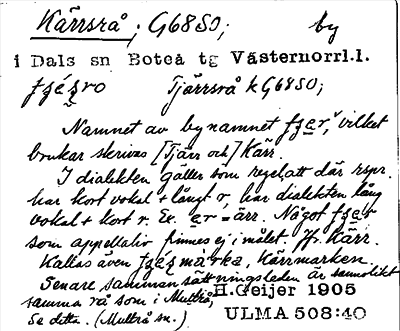 Kärrsrå; G6850; by
i Dals sn Boteå tg Västernorrl.l.
Tjärrsrå k G6850;
Namnet av bynamnet vilket
brukar skrivas [Tjärr och] Kärr.
I dialekten gäller som regel att där rspr.
har kort vokal + långt r, har dialekten lång
vokal + kort r. Ex. er = ärr. Något
som appellativ finnes ej i målet. Jfr. Kärr.
Kallas även Kärrmarken.
Senare sammansättningsleden är sannolikt
samma rå som i Multrå,
Se detta. (Multrå sn.)
H.Geijer 1905
ULMA 508:40